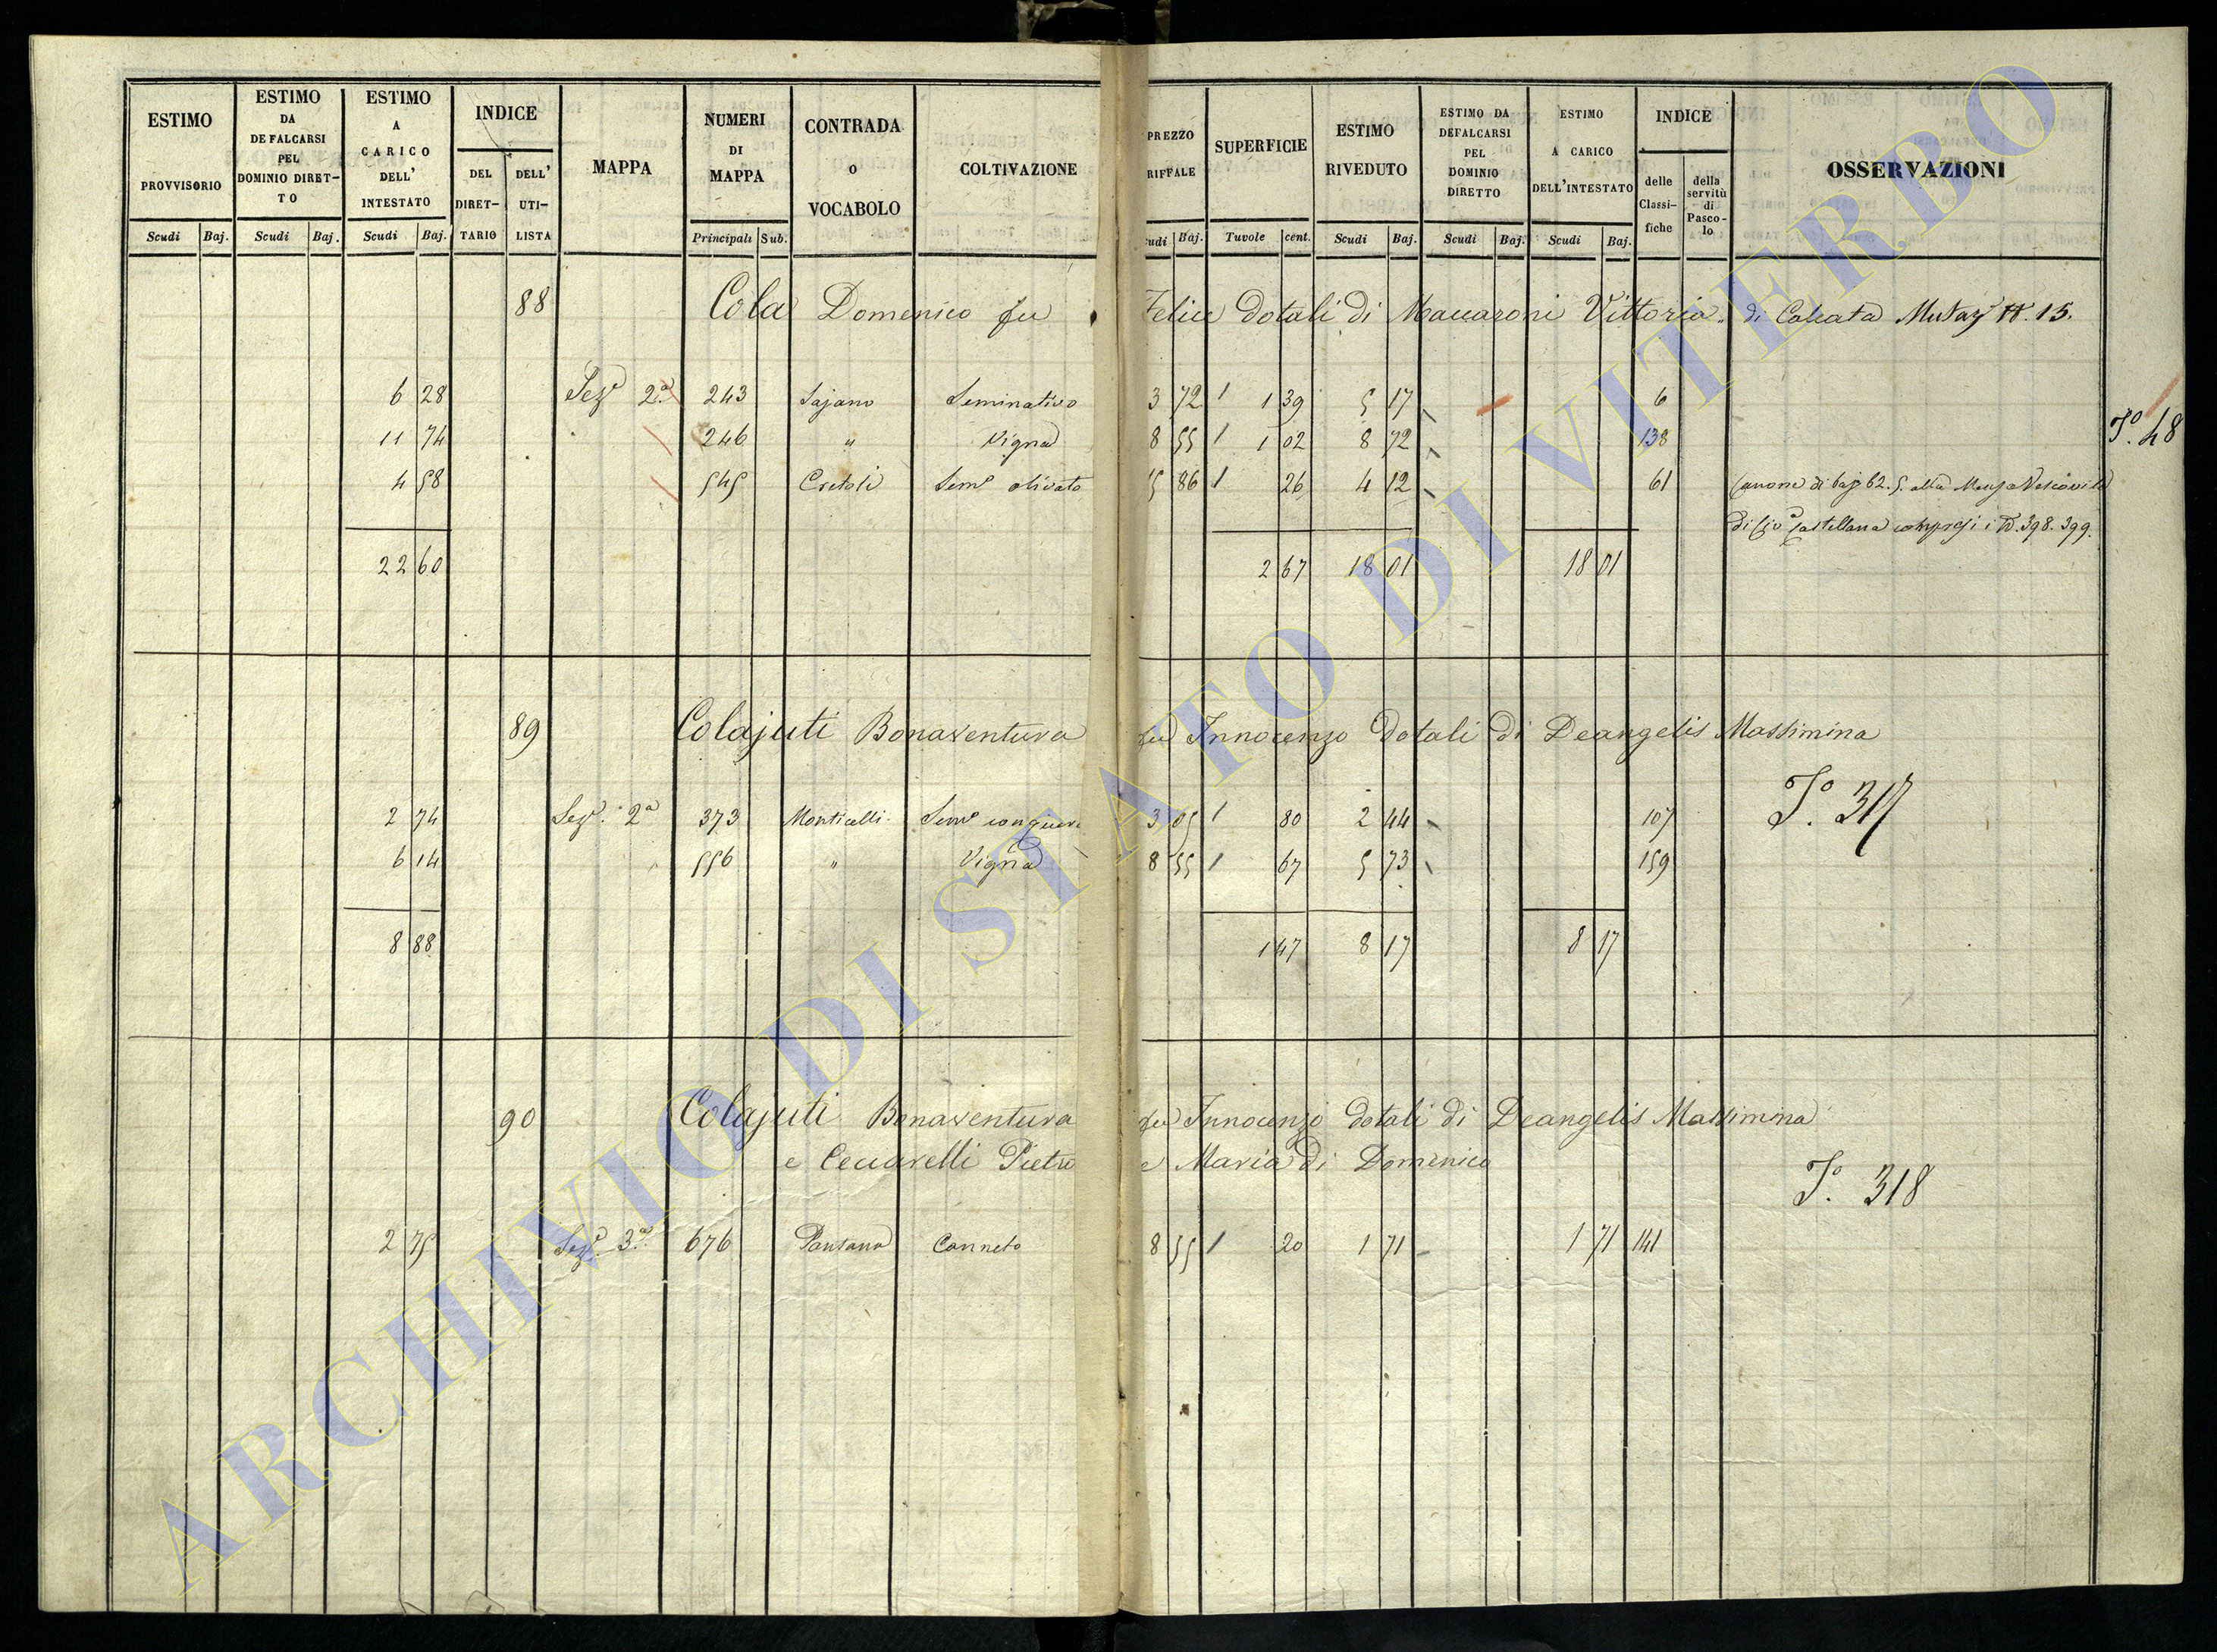 ESTIMO PROVVISORIO Scudi Baj.
ESTIMO DA DEFALCARSI PEL DOMINIO DIRET-TO Scudi Baj.
ESTIMO A CARICO DELL' INTESTATO Scudi Baj.
INDICE DEL DIRET-TARIO DELL' UTI-LISTA
MAPPA
NUMERI DI MAPPA Principali Sub.
CONTRADA O VOCABOLO
COLTIVAZIONE
PREZZO RIFFALE udi Baj.
SUPERFICIE Tavole cent.
ESTIMO RIVEDUTO Scudi Baj.
ESTIMO DA DEFALCARSI PEL DOMINIO DIRETTO Scudi Baj.
ESTIMO A CARICO DELL'INTESTATO Scudi Baj.
INDICE delle Classi-fiche della servitù di Pasco-lo
OSSERVAZIONI
88 Cola Domenico fu Felice dotali di Maccaroni Vittoria di Calcata 15.
6 28 Seze 2a 243 Sajano Seminativo 3 72 1 1 39 5 17 6
11 74 246 " Vigna 8 55 1 1 02 8 72 138
To. 48
4 58 545 Cretoli Seme olivato 5 86 1 26 4 12 61 Canone di baj 62.5. alla Mensa Vescovile
di Castellana compresi i N. 398. 399.
22 60 2 67 18 01 18 01
89 Colajuti Bonaventura fu Innocenzo dotali di Deangelis Massimina
To. 317
2 74 Seze. 2a 373 Monticelli Seme 3 05 1 80 2 44 107
6 14 556 " Vigna 8 55 1 67 5 73 159
8 88 1 47 8 17 8 17
90 Colajuti Bonaventura fu Innocenzo dotali di Deangelis Massimina
e Ceccarelli Pietro e Maria di Domenico
To. 318
2 75 Seze. 3a 676 Pansano Canneto 8 55 1 20 1 71 1 71 141
ARCHIVIO DI STATO DI VITERBO